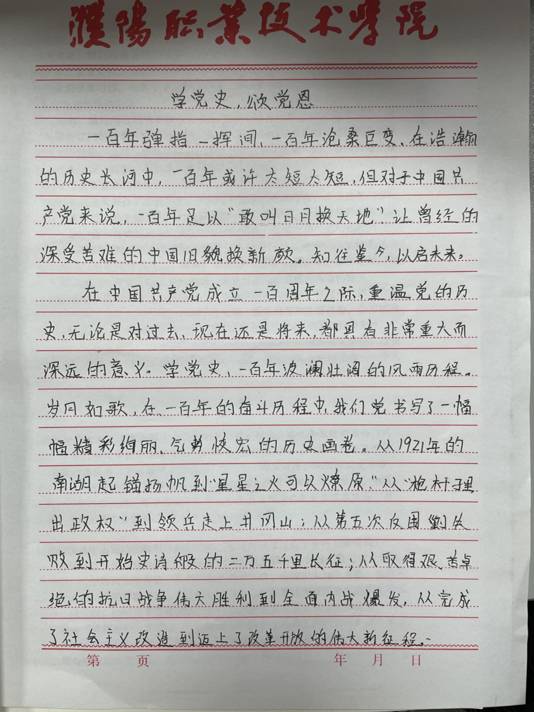 濮阳职业技术学院
学党史，颂党恩
一百年弹指一挥间，一百年沧桑巨变，在浩瀚
的历史长河中，一百年或许太短太短，但对于中国共
产党来说，一百年足以“敢叫日月换天地”让曾经的
深受苦难的中国旧貌换新颜。知往鉴今，以启未来。
在中国共产党成立一百周年之际，重温党的历
史，无论是对过去、现在还是将来，都具有非常重大而
深远的意义。学党史，一百年波澜壮阔的风雨历程。
岁月如歌，在一百年的奋斗历程中，我们党书写了一幅
幅精彩绚丽、气势恢宏的历史画卷。从1921年的
南湖起锚扬帆到“星星之火可以燎原”，从“枪杆子里
出政权”到领兵走上井冈山；从第五次反围剿失
败到开始史诗般的二万五千里长征；从取得艰苦卓
绝的抗日战争伟大胜利到全面内战爆发，从完成
了社会主义改造到迈上了改革开放的伟大新征程。
第 页 年 月 日